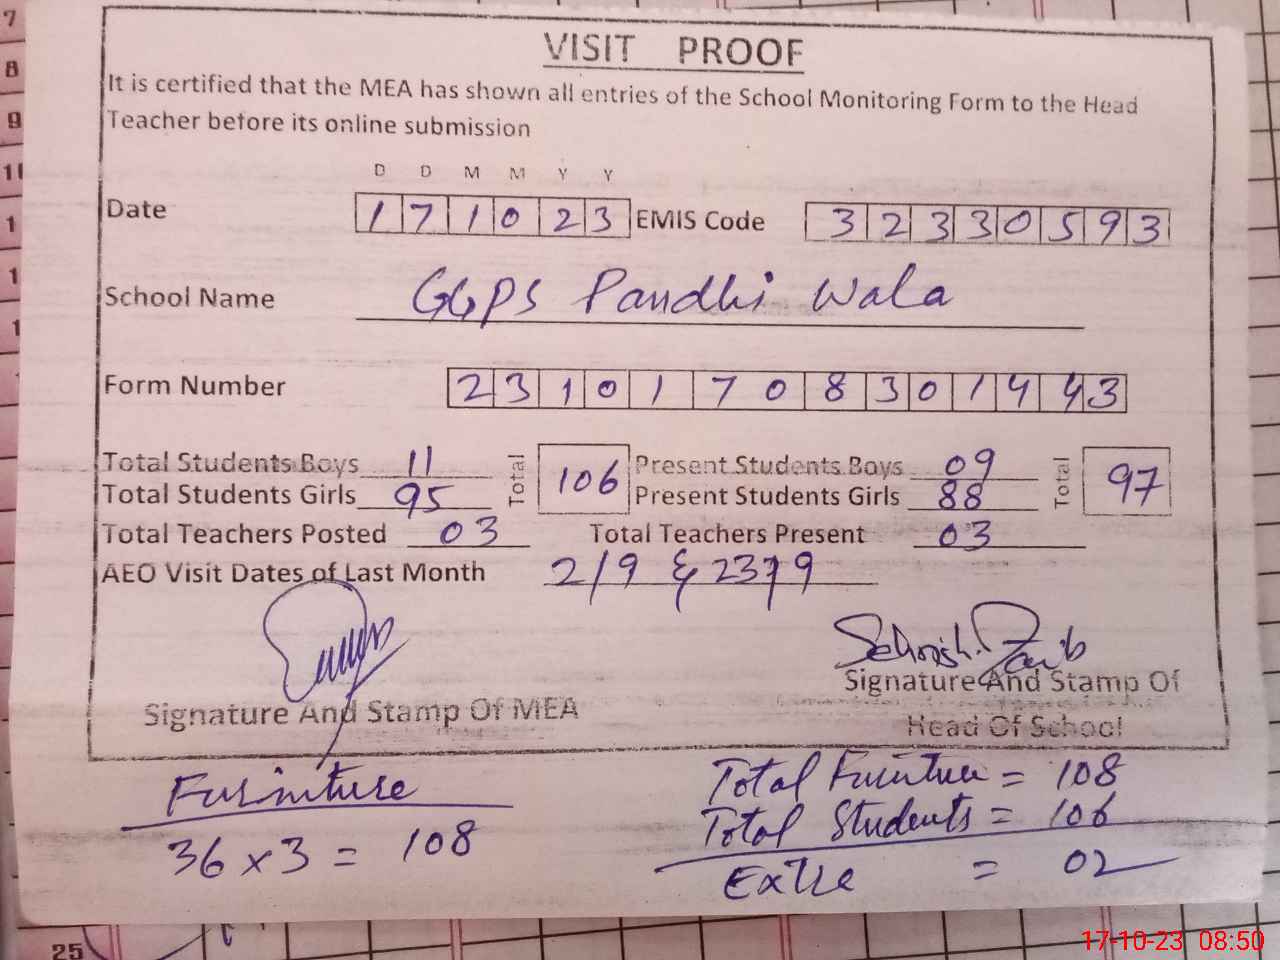 7
8
9
VISIT PROOF
It is certified that the MEA has shown all entries of the School Monitoring Form to the Head
Teacher before its online submission
D D M M Y Y
Date 171023 EMIS Code 32330593
School Name GGPS Pandhi Wala
Form Number 23101708301443
Total Students Boys 11 Total 106 Present Students Boys 09 Total 97
Total Students Girls 95 Present Students Girls 88
Total Teachers Posted 03 Total Teachers Present 03
AEO Visit Dates of Last Month 2/9 &
Signature And Stamp Of MEA
Signature And Stamp Of
Head Of School
Furniture
36 x 3 = 108
Total Furniture = 108
Total Students = 106
Extre = 02
25
17-10-23 08:50